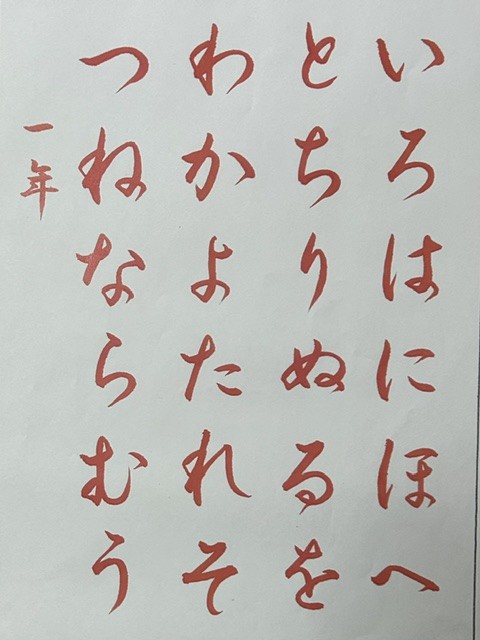 いろはにほへ
とちりぬるを
わかよたれそ
つねならむう
一年